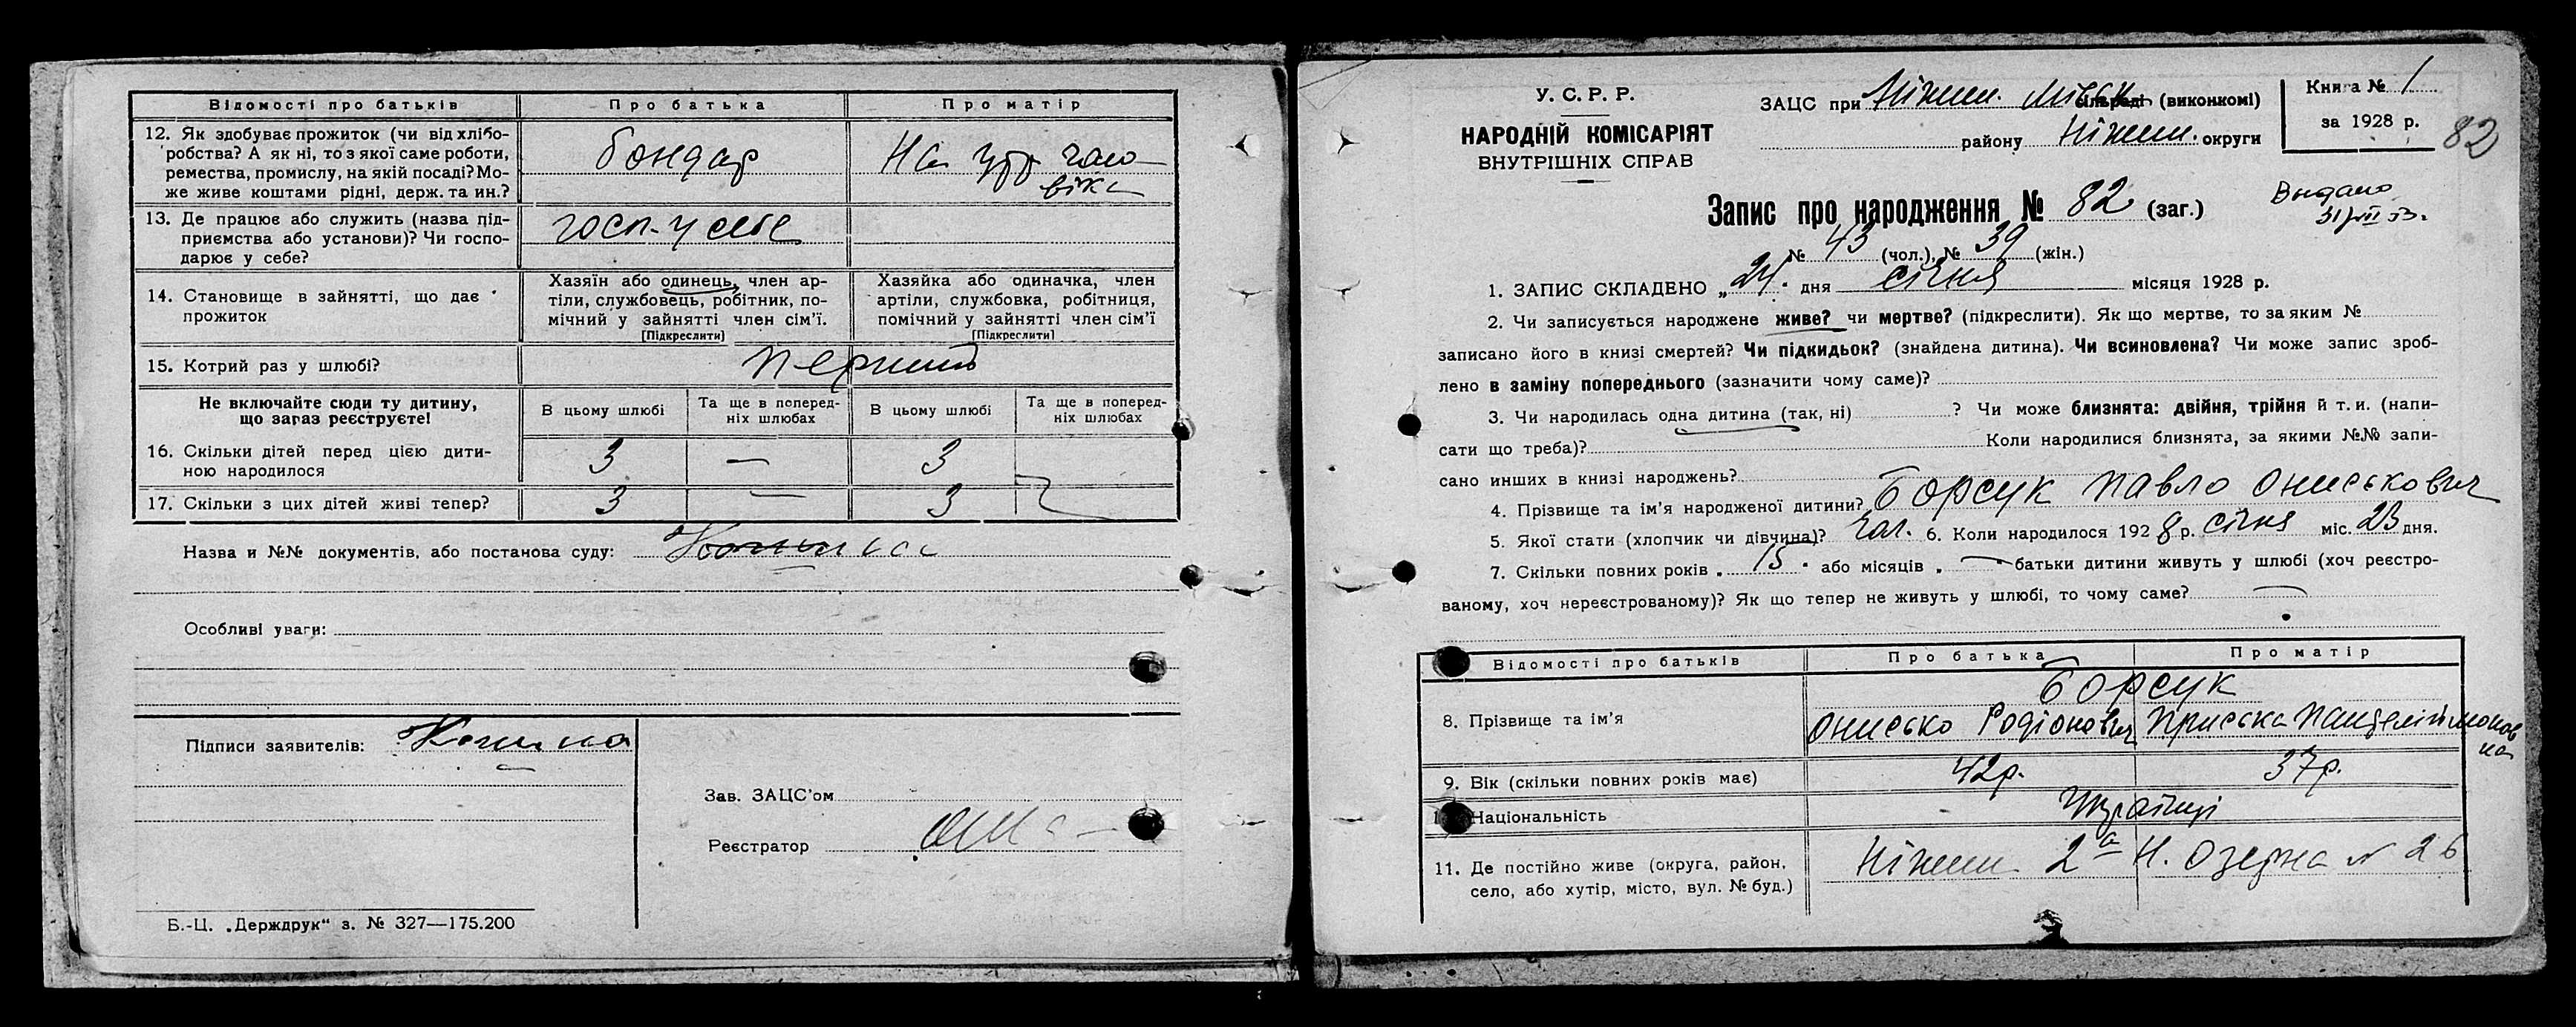 Відомості про батьків Про батька Про матір
12. Як здобуває прожиток (чи від хлібо-
робства? А як ні, то з якої саме роботи,
ремества, промислу, на якій посаді? Мо-
же живе коштами рідні, держ. та ин.?
бондар
На утр чоло
віка
13. Де працює або служить (назва під-
приємства або установи)? Чи госпо-
дарює у себе?
госп. у себе
14. Становище в зайнятті, що дає
прожиток
Хазяїн або одинець, член ар-
тілі, службовець, робітник, по-
мічний у зайнятті член сім'ї.
[Підкреслити]
Хазяйка або одиначка, член
артілі, службовка, робітниця,
помічний у зайнятті член сім'ї
[Підкреслити]
15. Котрий раз у шлюбі?
перший
Не включайте сюди ту дитину,
що загаз реєструєте!
В цьому шлюбі
Та ще в поперед-
ніх шлюбах
В цьому шлюбі
Та ще в поперед-
ніх шлюбах
16. Скільки дітей перед цією дити-
ною народилося
3 — 3
17. Скільки з цих дітей живі тепер? 3 — 3
Назва и №№ документів, або постанова суду:
Особливі уваги:
Підписи заявителів:
Зав. ЗАЦС'ом
Реєстратор
Б.-Ц. „Держдрук“ з. № 327—175.200
У. С. Р. Р.
НАРОДНІЙ КОМІСАРІЯТ
ВНУТРІШНІХ СПРАВ
ЗАЦС при Ніжин. міськ сільраді (виконкомі)
району Ніжин. округи
Книга № 1
за 1928 р.
82
Запис про народження № 82 (заг.)
Выдано
31/VII 53.
№ 43 (чол.), № 39 (жін.)
1. ЗАПИС СКЛАДЕНО „24. дня січня місяця 1928 р.
2. Чи записується народжене живе? чи мертве? (підкреслити). Як що мертве, то за яким №
записано його в книзі смертей? Чи підкидьок? (знайдена дитина). Чи всиновлена? Чи може запис зроб-
лено в заміну попереднього (зазначити чому саме)?
3. Чи народилась одна дитина (так, ні) ? Чи може близнята: двійня, трійня й т. и. (напи-
сати що треба)? Коли народилися близнята, за якими №№ запи-
сано инших в книзі народжень?
4. Прізвище та ім'я народженої дитини? Борсук Павло Ониськович
5. Якої стати (хлопчик чи дівчина)? Чол. 6. Коли народилося 1928 р. січня міс. 23 дня.
7. Скільки повних років „ 15 „ або місяців „ — батьки дитини живуть у шлюбі (хоч реєстро-
ваному, хоч нереєстрованому)? Як що тепер не живуть у шлюбі, то чому саме? —
Відомості про батьків Про батька Про матір
Борсук
8. Прізвище та ім'я Онисько Родіонович Приська Панделіймонов
на
9. Вік (скільки повних років має) 42р. 37р.
Національність Українці
11. Де постійно живе (округа, район,
село, або хутір, місто, вул. № буд.)
Ніжин 2а Н. Озерна N 26